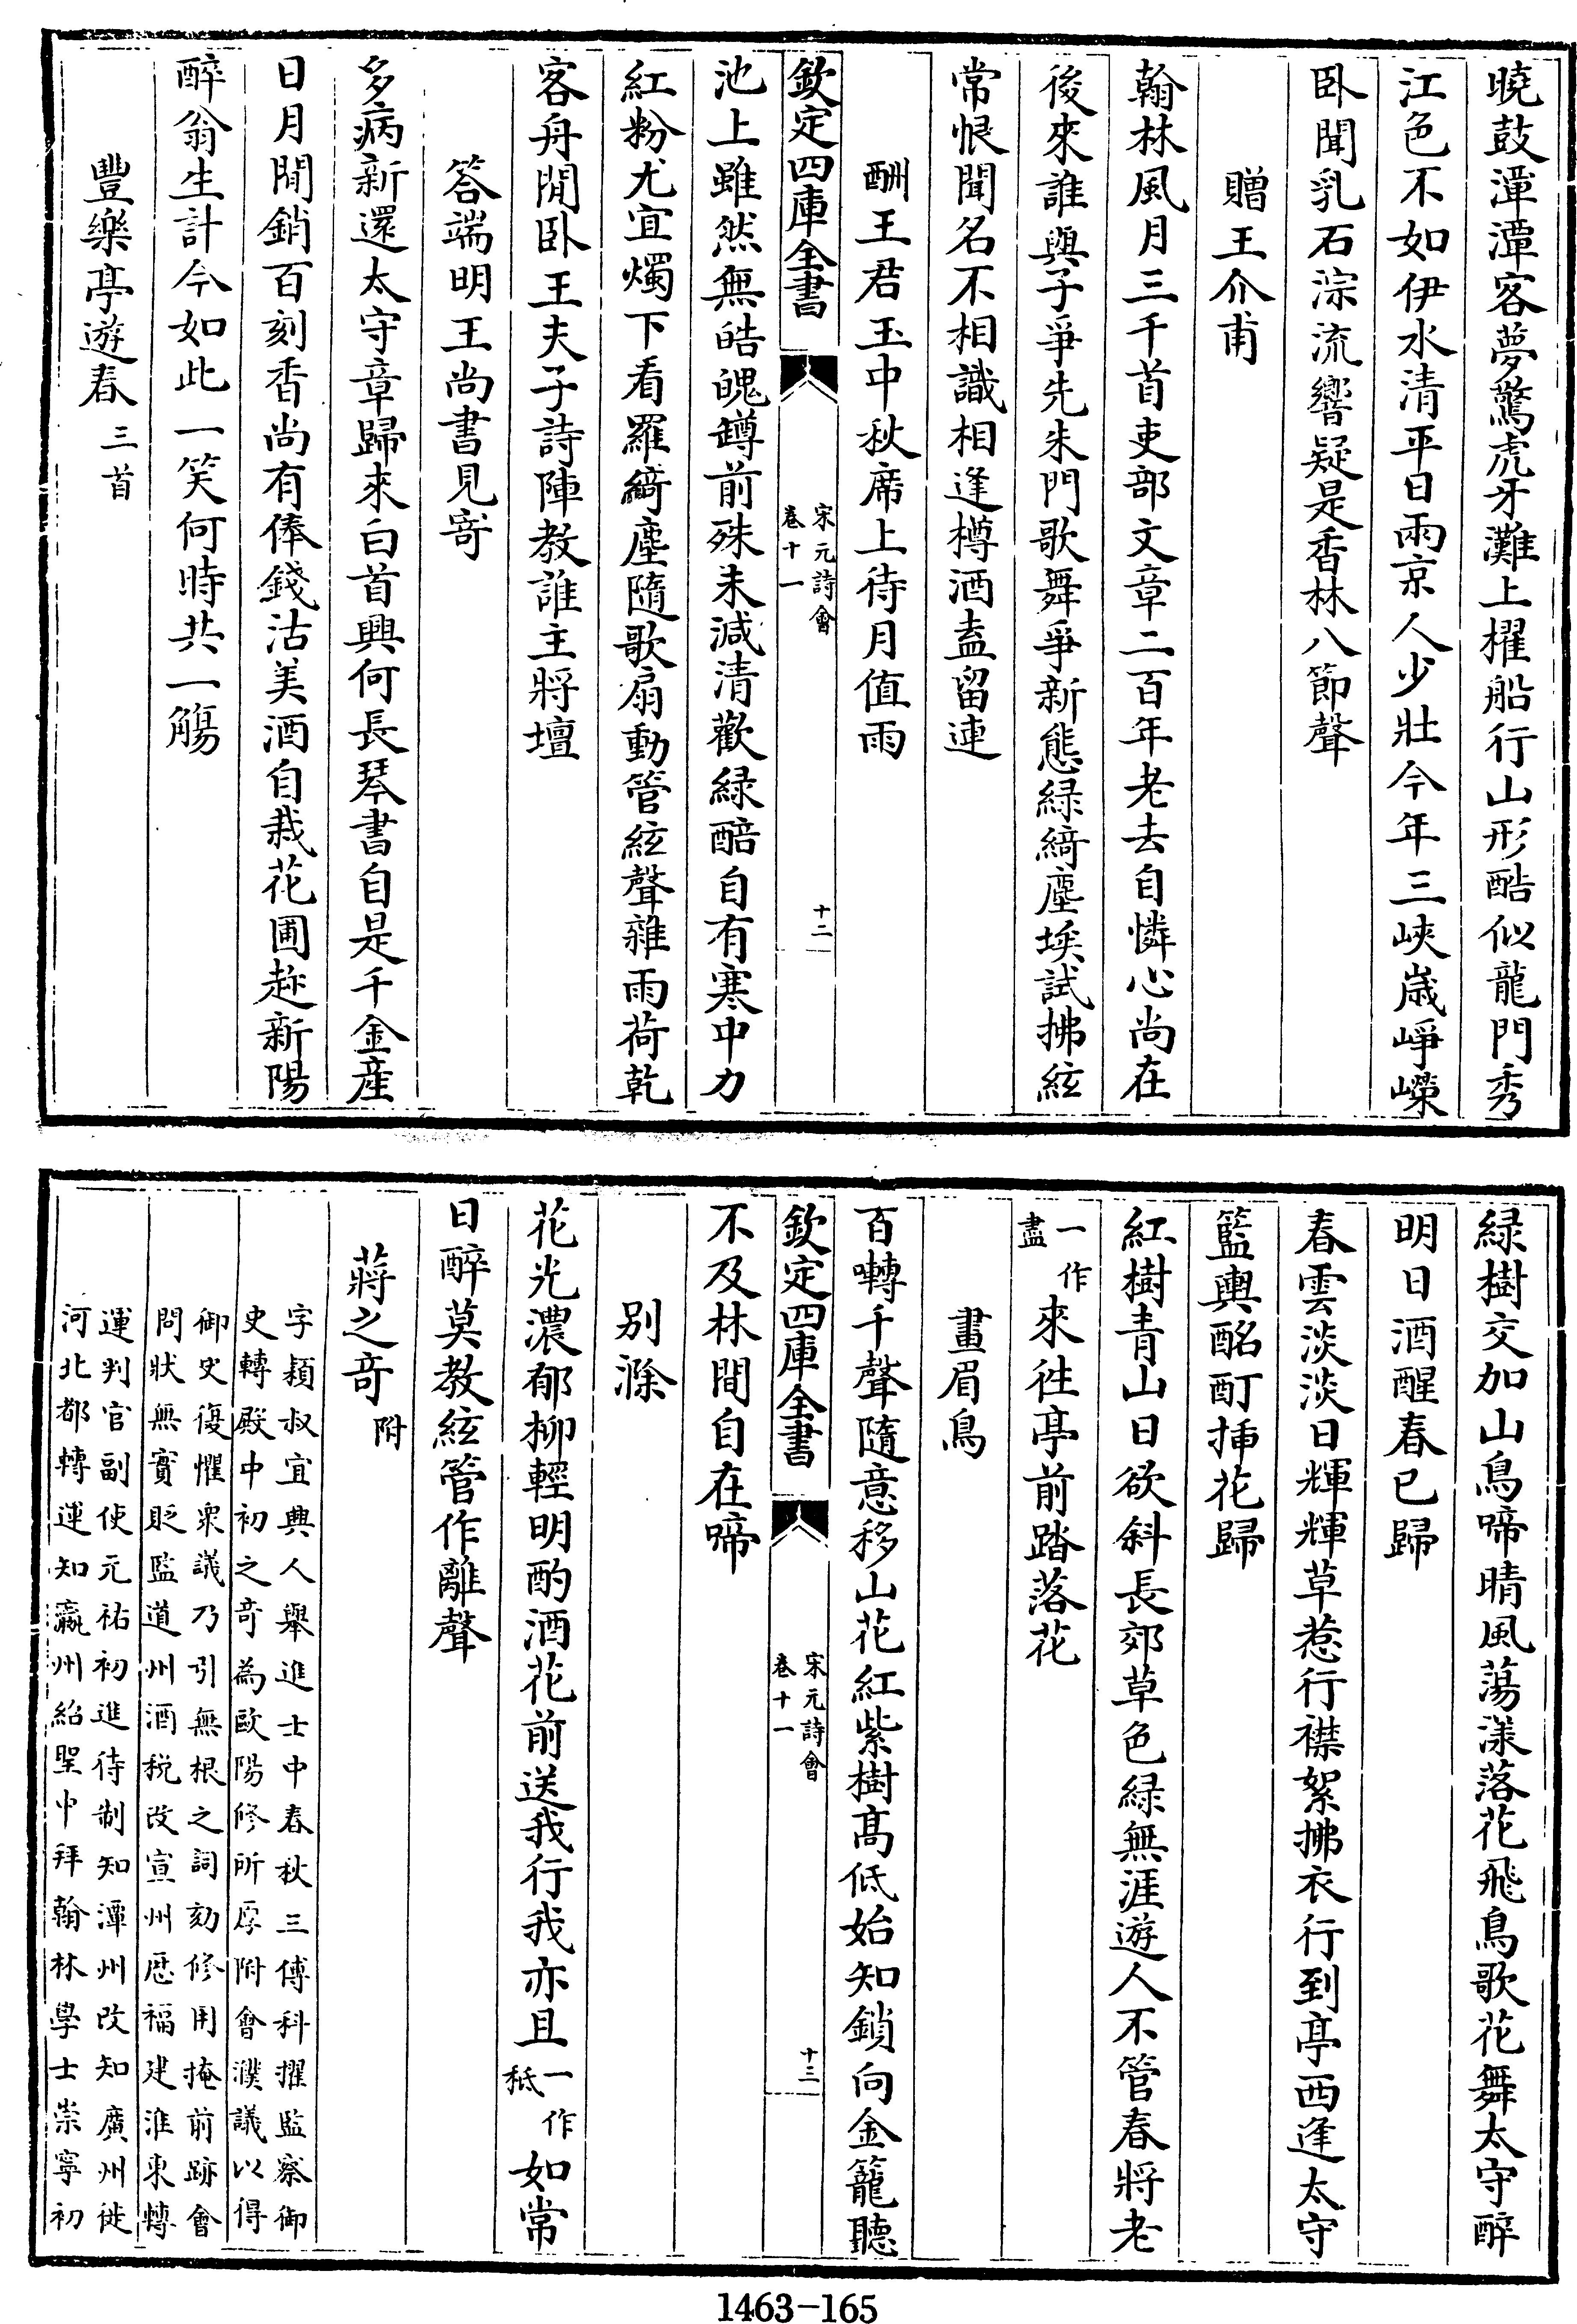 曉鼓潭潭客夢驚虎牙灘上櫂船行山形酷似龍門秀
江色不如伊水清平日兩京人少壯今年三峽嵗崢嶸
卧聞乳石淙流響疑是香林八節聲
贈王介甫
翰林風月三千首吏部文章二百年老去自憐心尚在
後來誰與子爭先朱門歌舞爭新態緑綺塵埃試拂絃
常恨聞名不相識相逢樽酒盍留連
酬王君玉中秋席上待月值雨
欽定四庫全書
宋元詩會
卷十一
十二
池上雖然無皓魄罇前殊未減清歡緑醅自有寒中力
紅粉尤宜燭下看羅綺塵隨歌扇動管絃聲雜雨荷乾
客舟閒卧王夫子詩陣教誰主將壇
答端明王尚書見寄
多病新還太守章歸來白首興何長琴書自是千金産
日月閒銷百刻香尚有俸錢沽美酒自栽花圃趂新陽
醉翁生計今如此一笑何時共一觴
豐樂亭遊春 三首
緑樹交加山鳥啼晴風蕩漾落花飛鳥歌花舞太守醉
明日酒醒春已歸
春雲淡淡日輝輝草惹行襟絮拂衣行到亭西逢太守
籃輿酩酊挿花歸
紅樹青山日欲斜長郊草色緑無涯遊人不管春將老
一作
盡
來徃亭前踏落花
畫眉鳥
百囀千聲隨意移山花紅紫樹髙低始知鎖向金籠聽
欽定四庫全書
宋元詩會
卷十一
十三
不及林間自在啼
别滁
花光濃郁柳輕明酌酒花前送我行我亦且
一作
秪
如常
日醉莫教絃管作離聲
蔣之竒 附
字穎叔宜興人舉進士中春秋三傅科擢監察御
史轉殿中初之竒為歐陽修所厚附會濮議以得
御史復懼衆議乃引無根之詞劾修用掩前跡會
問狀無實貶監道州酒税改宣州厯福建淮東轉
運判官副使元祐初進待制知潭州改知廣州徙
河北都轉運知瀛州紹聖中拜翰林學士崇寧初
1463-165